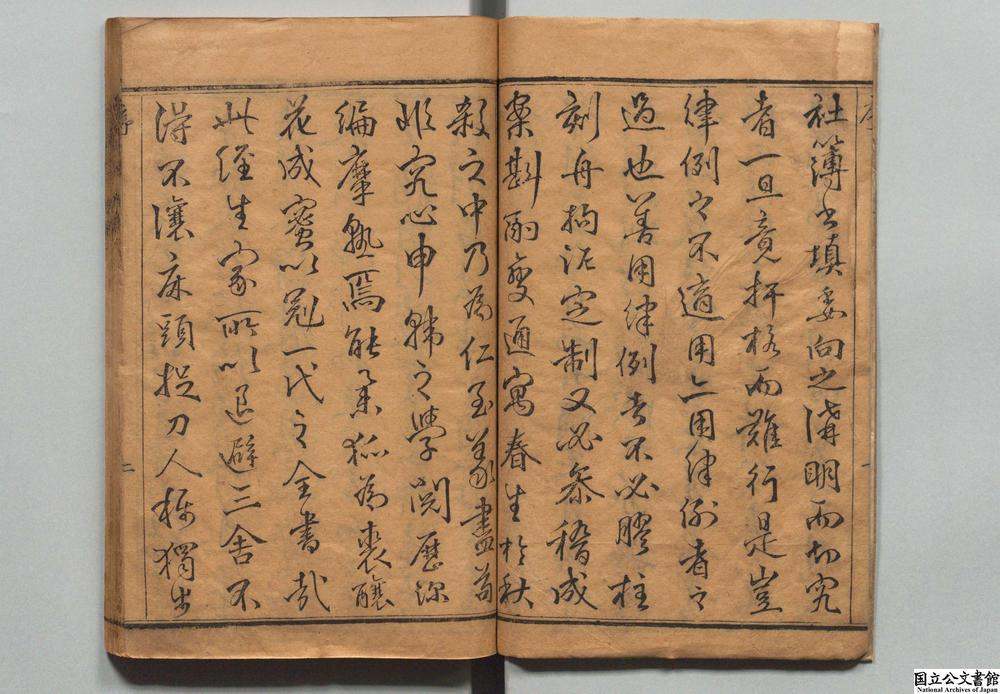 社簿書填委向之講明而切究
者一旦竟扞格而難行是豈
律例之不適用亦用律例者之
過也善用律例者不必膠柱
刻舟拘泥定制又必參稽成
案斟酌變通寓春生於秋
殺之中乃為仁至義盡苟
非究心申韓之學閱歷深
編摩熟焉能集狐為裘釀
花成蜜以冠一代之全書哉
此經生家所以退避三舍不
得不讓床頭捉刀人稱獨步
序 二
国立公文書館
National Archives of Japan